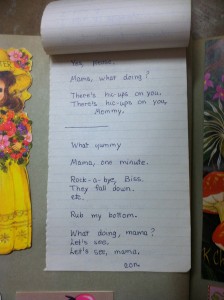 Mama, what doing?
There's hic-ups on you.
There's hic-ups on you,
Mommy.
What yummy
Mama, one minute.
Rock-a-bye, Biss.
They fall down.
etc.
Rub my bottom.
What doing, mama?
Let's see.
Let's see, mama.